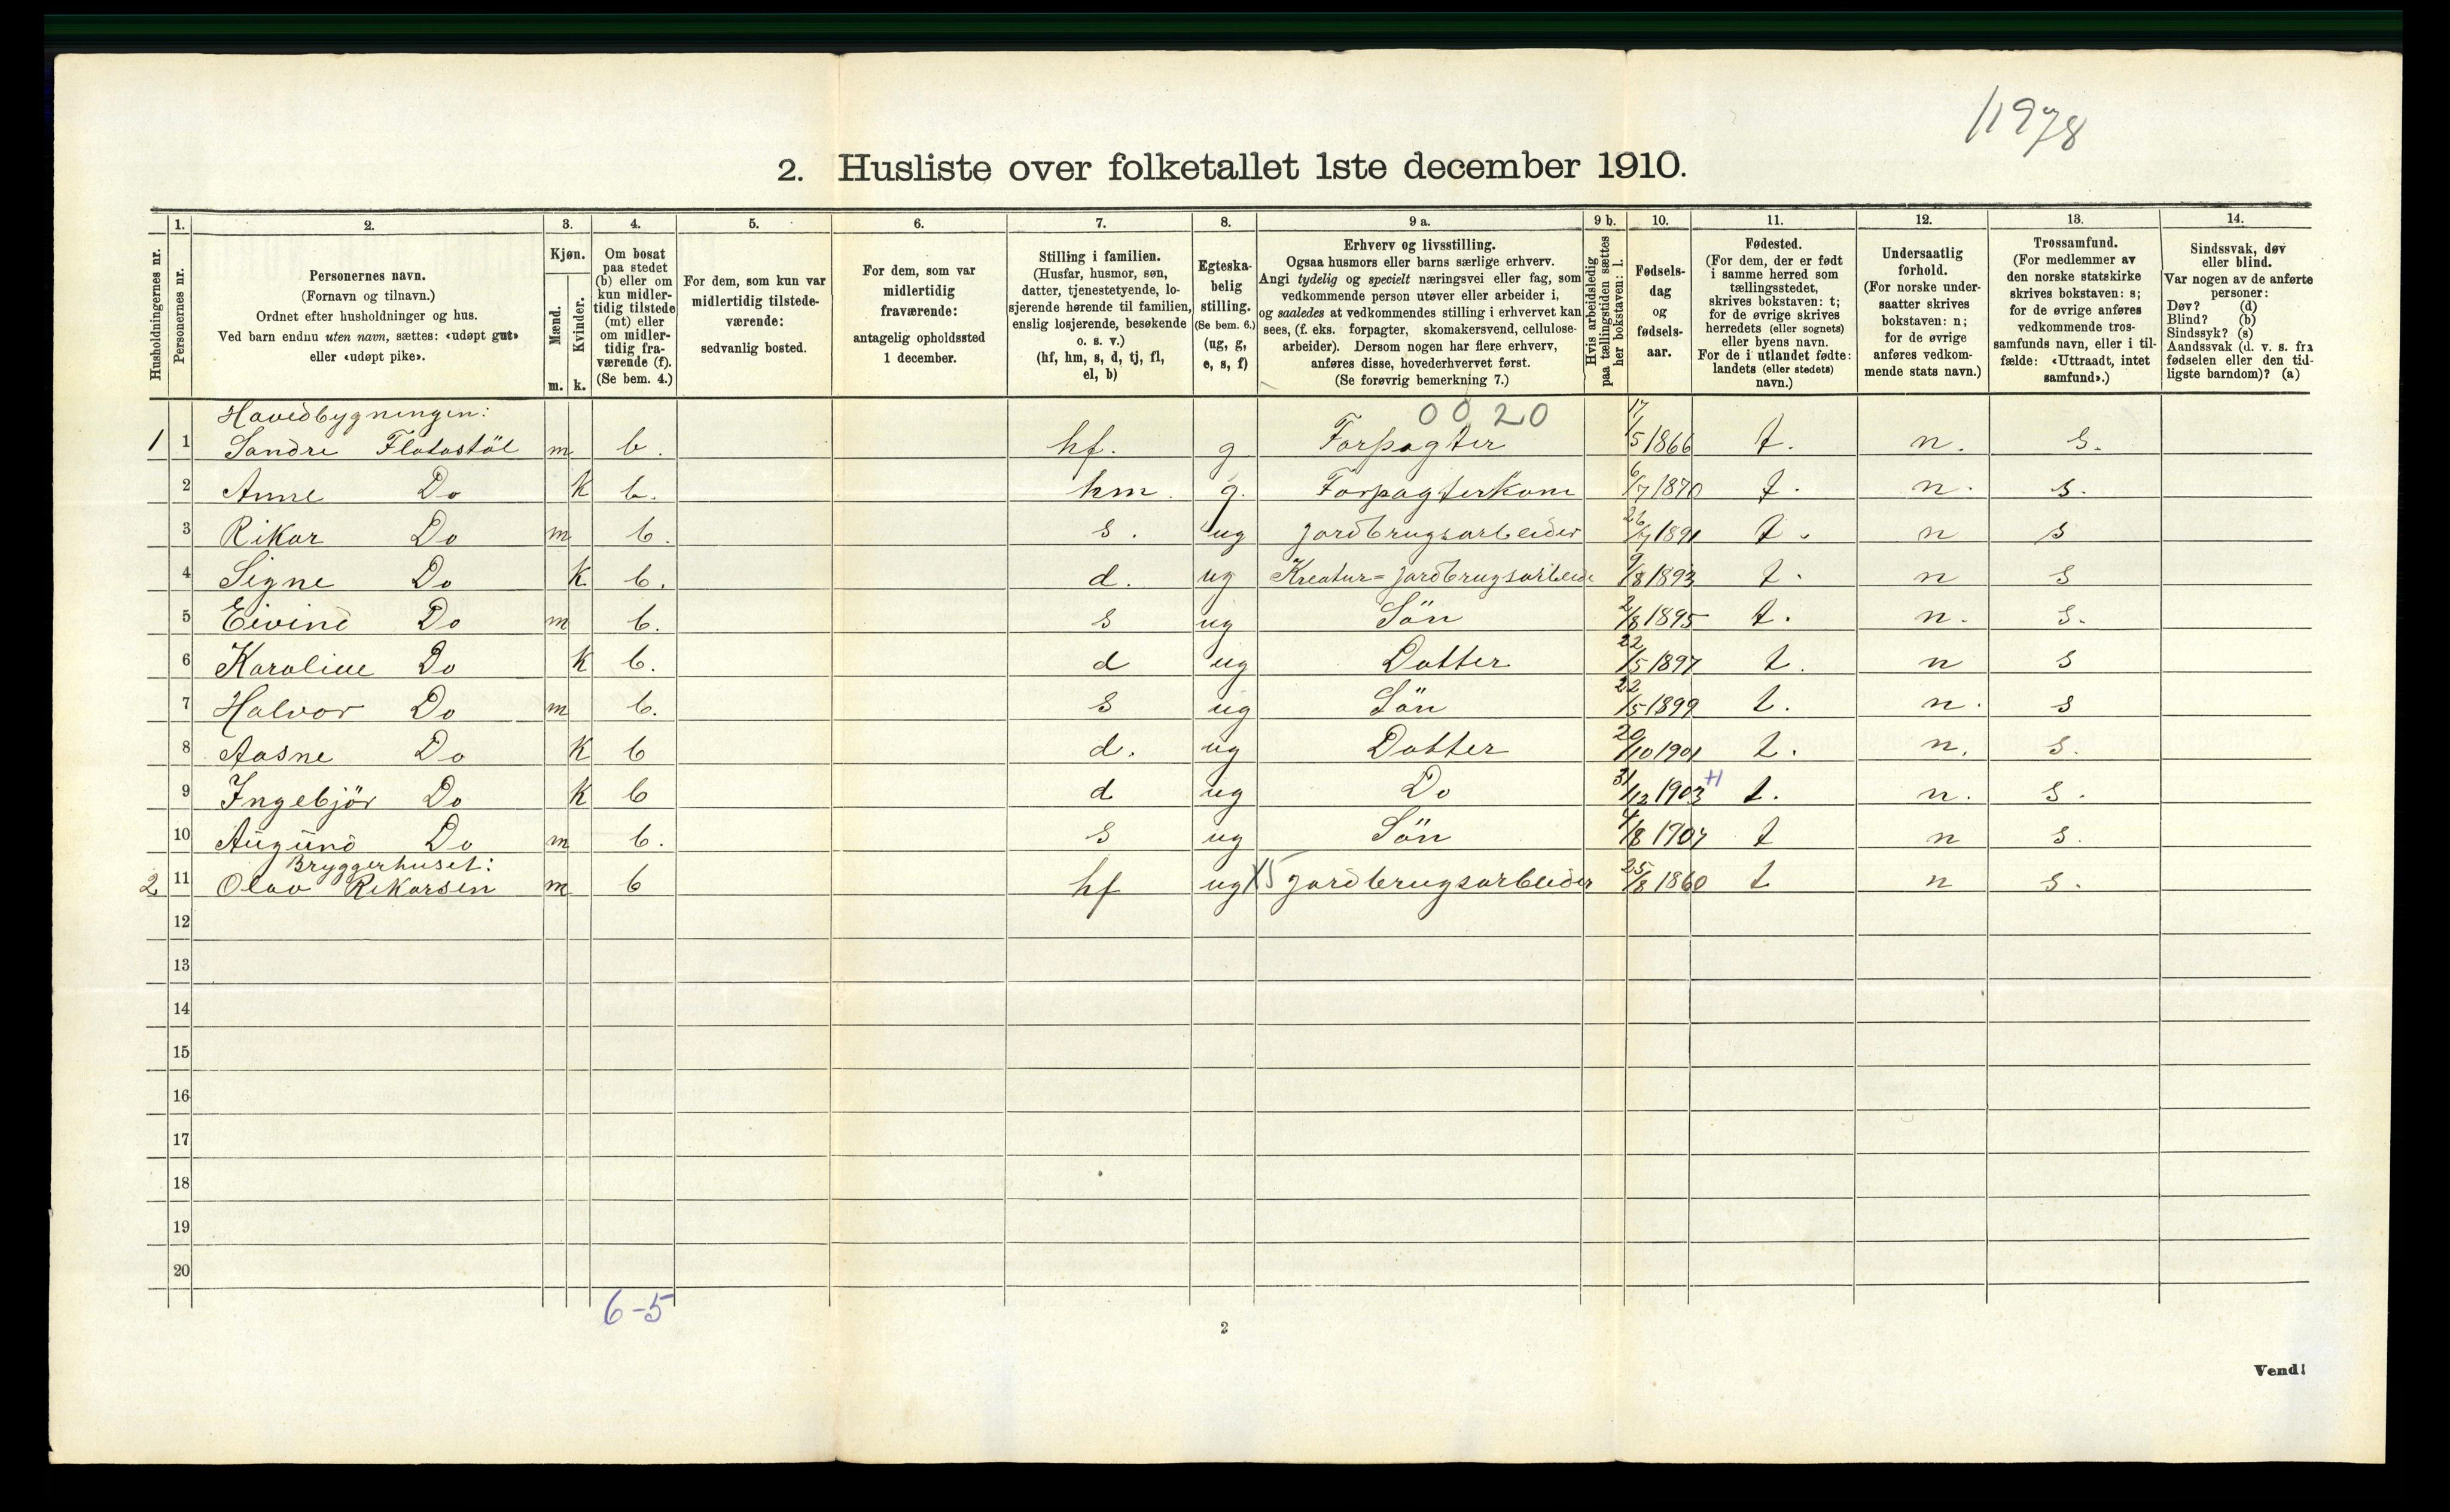 11978
2. Husliste over folketallet 1ste december 1910.
Husholdningernes nr.
1.
Personernes nr.
2.
Personernes navn.
(Fornavn og tilnavn.)
Ordnet efter husholdninger og hus.
Ved barn endnu uten navn, sættes: «udøpt gut»
eller «udøpt pike».
3.
Kjøn.
Mænd.
Kvinder.
m. k.
4.
Om bosat
paa stedet
(b) eller om
kun midler-
tidig tilstede
(mt) eller
om midler-
tidig fra-
værende (f).
(Se bem. 4.)
5.
For dem, som kun var
midlertidig tilstede-
værende:
sedvanlig bosted.
6.
For dem, som var
midlertidig
fraværende:
antagelig opholdssted
1 december.
7.
Stilling i familien.
(Husfar, husmor, søn,
datter, tjenestetyende, lo-
sjerende hørende til familien,
enslig losjerende, besøkende
o. s. v.)
(hf, hm, s, d, tj, fl,
el, b)
8.
Egteska-
belig
stilling.
(Se bem. 6.)
(ug, g,
e, s, f)
9 a.
Erhverv og livsstilling.
Ogsaa husmors eller barns særlige erhverv.
Angi tydelig og specielt næringsvei eller fag, som
vedkommende person utøver eller arbeider i,
og saaledes at vedkommendes stilling i erhvervet kan
sees, (f. eks. forpagter, skomakersvend, cellulose-
arbeider). Dersom nogen har flere erhverv,
anføres disse, hovederhvervet først.
(Se forøvrig bemerkning 7.)
9 b.
Hvis arbeidsledig
paa tællingstiden sættes
her bokstaven: l.
10.
Fødsels-
dag
og
fødsels-
aar.
11.
Fødested.
(For dem, der er født
i samme herred som
tællingsstedet,
skrives bokstaven: t;
for de øvrige skrives
herredets (eller sognets)
eller byens navn.
For de i utlandet fødte:
landets (eller stedets)
navn.)
12.
Undersaatlig
forhold.
(For norske under-
saatter skrives
bokstaven: n;
for de øvrige
anføres vedkom-
mende stats navn.)
13.
Trossamfund.
(For medlemmer av
den norske statskirke
skrives bokstaven: s;
for de øvrige anføres
vedkommende tros-
samfunds navn, eller i til-
fælde: «Uttraadt, intet
samfund».)
14.
Sindssvak, døv
eller blind.
Var nogen av de anførte
personer:
Døv? (d)
Blind? (b)
Sindssyk? (s)
Aandssvak (d. v. s. fra
fødselen eller den tid-
ligste barndom)? (a)
Hovedbygningen: 0 0 20
1 1 Sondre Flatastöl m b. hf. g Forpagter 17/5 1866 t. n. s.
2 Anne Do k b. hm. g. Forpagterkone 6/7 1870 t. n. s.
3 Rikar Do m b. s. ug Jordbrugsarbeider 26/7 1891 t. n s
4 Signe Do k b. d. ug Kreatur= Jordbrugsarbeide 9/8 1893 t. n s
5 Eivind Do m b. s ug Sön 2/8 1895 t. n. s.
6 Karoline Do k b. d ug Datter 22/5 1897 t. n s
7 Halvor Do m b. s ug Sön 22/5 1899 t. n. s
8 Aasne Do k b d. ug Datter 20/10 1901 t. n. s.
9 Ingebjör Do k b d ug Do 31/12 1903 +1 t. n. s.
10 Augund Do m b. s ug Sön 4/8 1907 t n s.
Bryggerhuset:
2 11 Olav Rikarsen m b hf ug X5 Jordbrugsarbeider 25/8 1860 t n s.
12
13
14
15
16
17
18
19
20
6-5
2
Vend!